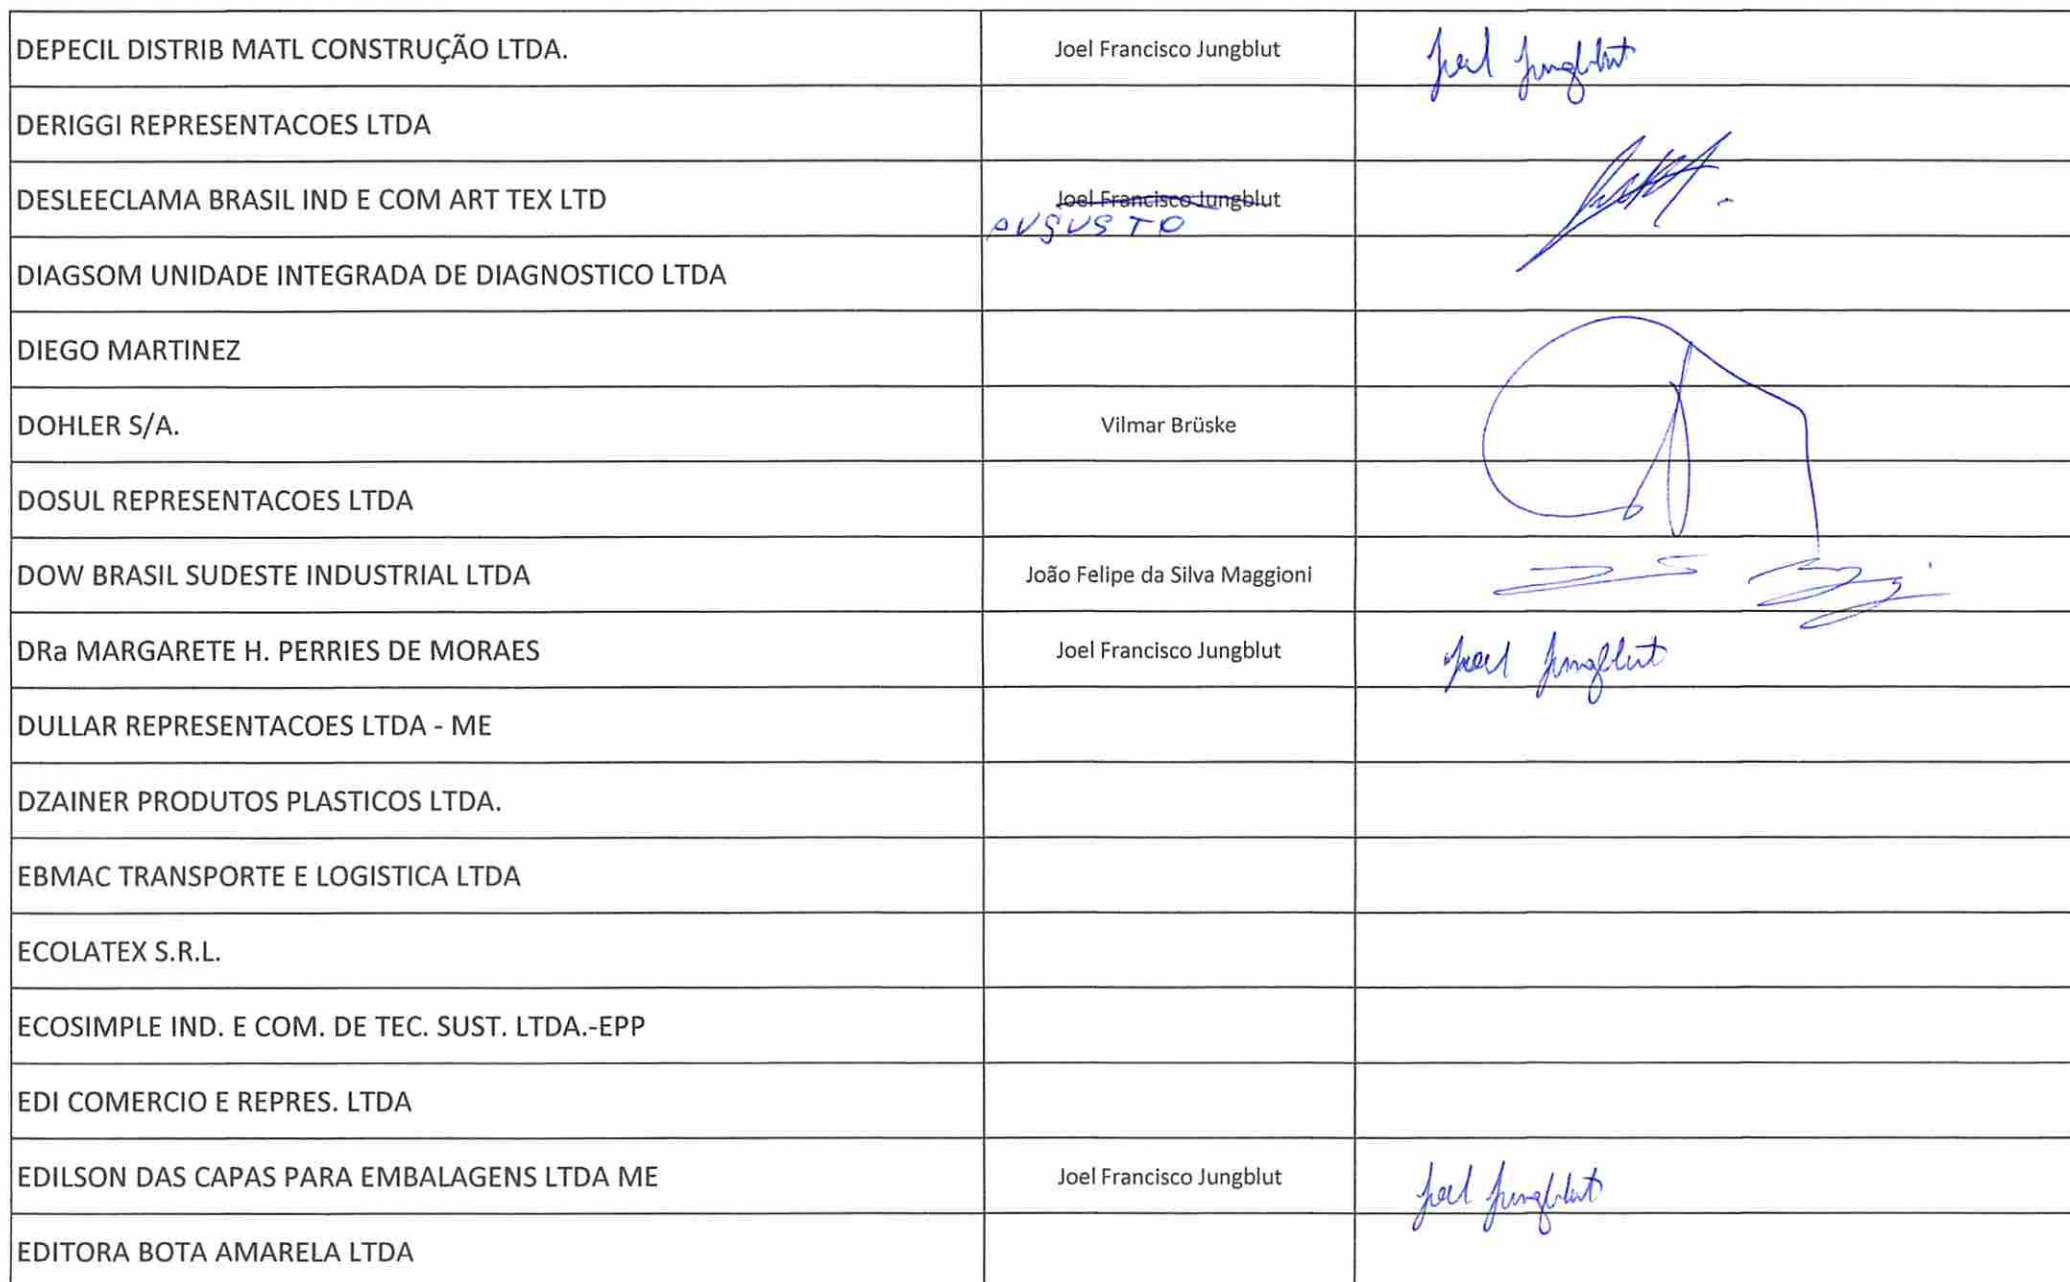 DEPECIL DISTRIB MATL CONSTRUÇÃO LTDA. Joel Francisco Jungblut Joel Jungblut
DERIGGI REPRESENTACOES LTDA
DESLEECLAMA BRASIL IND E COM ART TEX LTD Joel Francisco Jungblut
AUGUSTO
DIAGSOM UNIDADE INTEGRADA DE DIAGNOSTICO LTDA
DIEGO MARTINEZ
DOHLER S/A. Vilmar Brüske
DOSUL REPRESENTACOES LTDA
DOW BRASIL SUDESTE INDUSTRIAL LTDA João Felipe da Silva Maggioni
DRa MARGARETE H. PERRIES DE MORAES Joel Francisco Jungblut Joel Jungblut
DULLAR REPRESENTACOES LTDA - ME
DZAINER PRODUTOS PLASTICOS LTDA.
EBMAC TRANSPORTE E LOGISTICA LTDA
ECOLATEX S.R.L.
ECOSIMPLE IND. E COM. DE TEC. SUST. LTDA.-EPP
EDI COMERCIO E REPRES. LTDA
EDILSON DAS CAPAS PARA EMBALAGENS LTDA ME Joel Francisco Jungblut Joel Jungblut
EDITORA BOTA AMARELA LTDA